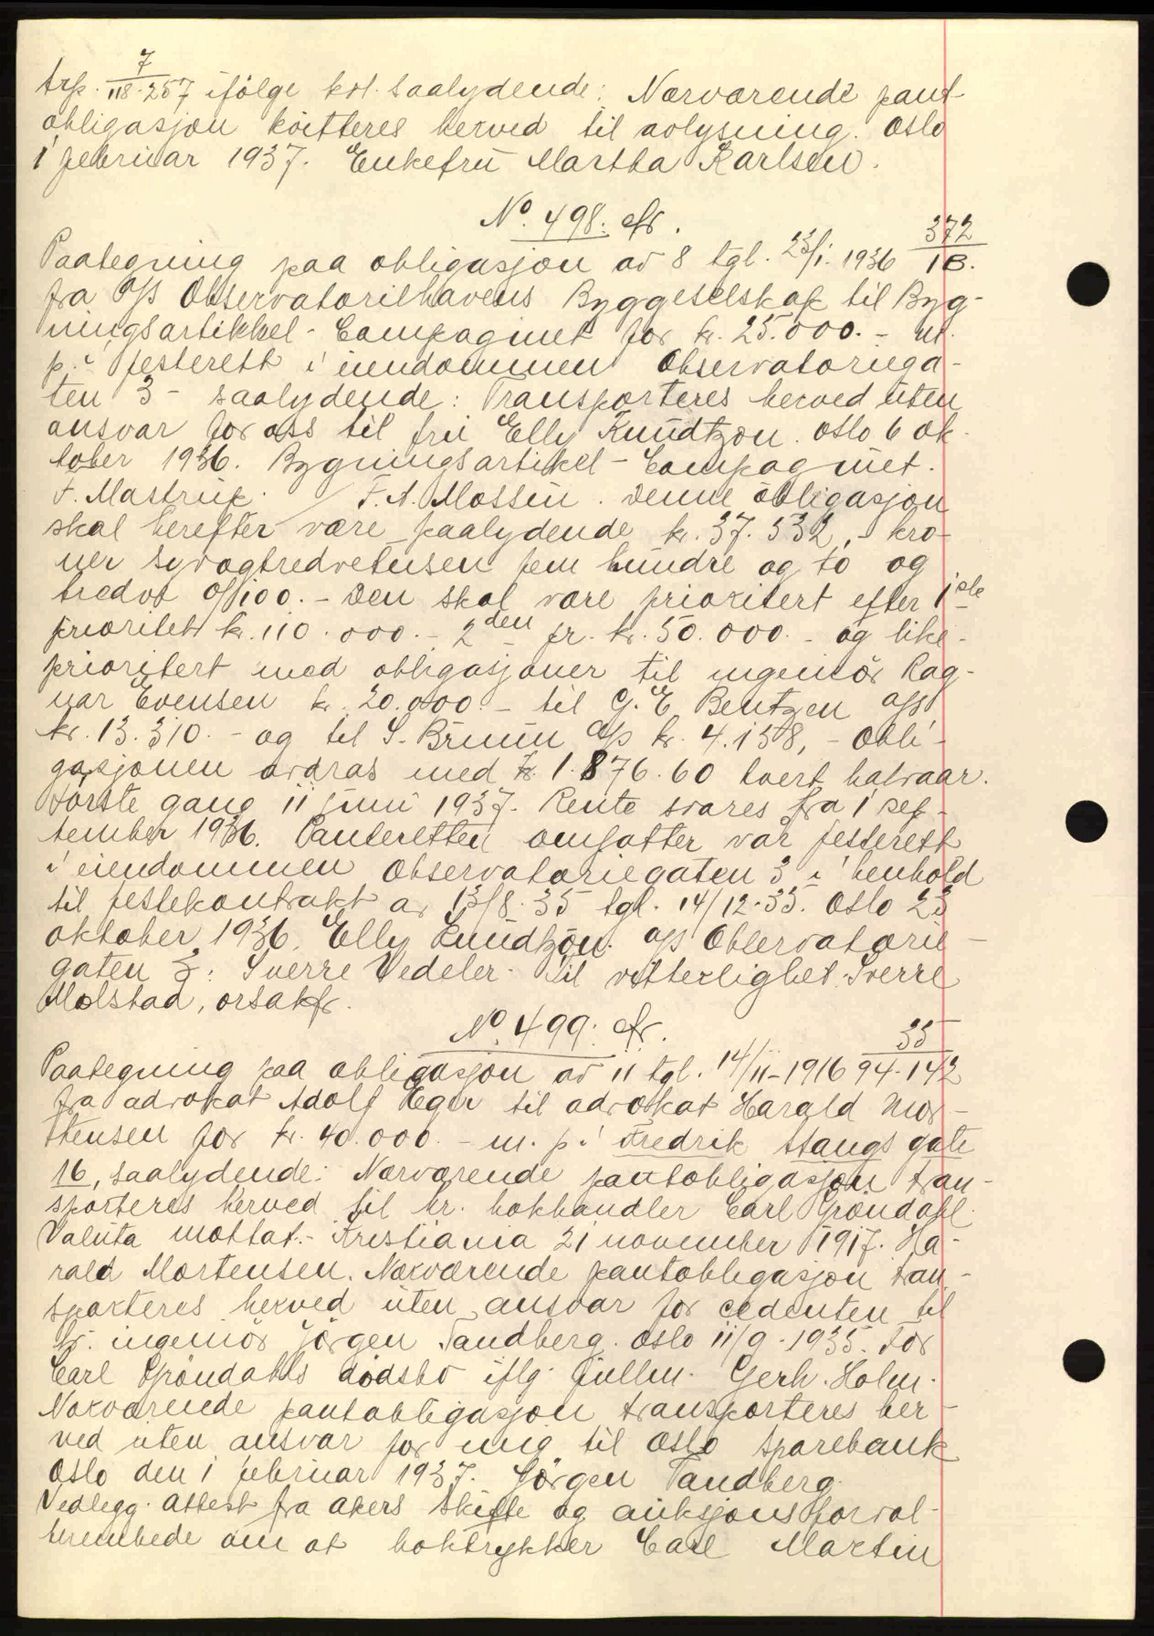 trp. 7/118-257 ifölge kvl. saalydende: Nærværende pant-
obligasjon kvitteres herved til avlysning. Oslo
1 februar 1937. Enkefru Martha Karlsen.
No. 498. cfr. 372/1B.
Paategning paa obligasjon av 8 tgl. 23/1. 1936
fra A/S Observatoriehavens Byggeselskap til Byg-
ningsartikkel-Compagniet for kr. 25.000.- m.
p. i festerett i eiendommen Observatoriega-
ten 3 - saalydende: Transporteres herved uten
ansvar for oss til fru Elly Knudtzon. Oslo 6 ok-
tober 1936. Bygningsartikel-Compagniet.
F. Mastrup. / F. A. Mossin. Denne obligasjon
skal herefter være paalydende kr. 37.532,- kro-
ner syvogtredvetusen fem hundre og to og
tredve 0/100.- Den skal være prioritert efter 1ste
prioritet kr. 110.000.- 2den pr. kr. 50.000.- og like-
prioritert med obligasjoner til ingeniör Rag-
nar Evensen kr. 20.000.- til G. E. Bentzen A/S
kr. 13.310.- og til S. Bruun A/S kr. 4.158,- Obli-
gasjonen avdras med kr. 1.876.60 hvert halvaar.
Förste gang 11 juni 1937. Rente svares fra 1 sep-
tember 1936. Panteretten omfatter vår festerett
i eiendommen Observatoriegaten 3 i henhold
til festekontrakt av 13/8-35 tgl. 14/12-35. Oslo 23
oktober 1936. Elly Knudtzon. A/S Observatorie-
gaten 3: Sverre Vedeler. Til vitterlighet: Sverre
Molstad, orsakfr.
No. 499. cfr. 35/94-142
Paategning paa obligasjon av 11 tgl. 14/11-1916
fra advokat Adolf Eger til advokat Harald Mor-
tensen for kr. 40.000.- m. p. i Fredrik Stangs gate
16, saalydende: Nærværende pantobligasjon tran-
sporteres herved til hr. bokhandler Carl Gröndahl.
Valuta mottat.- Kristiania 21 november 1917. Ha-
rald Mortensen. Nærværende pantobligasjon tran-
sporteres herved uten ansvar for cedenten til
hr. ingeniör Jörgen Sandberg. Oslo 11/9-1935. For
Carl Gröndahls dödsbo iflg. fullm. Gerh. Holm.
Nærværende pantobligasjon transporteres her-
ved uten ansvar for mig til Oslo Sparebank
Oslo den 1 februar 1937. Jörgen Sandberg.
Vedlegg. Attest fra Akers Skifte og auksjonsforval-
terembede om at boktrykker Carl Martin